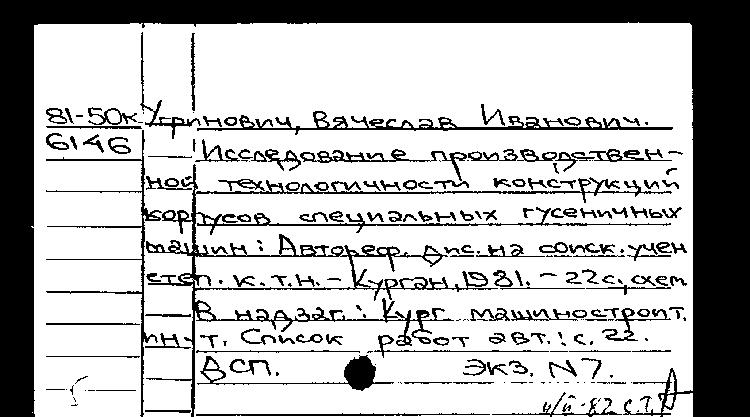 81-50к Угринович, Вячеслав Иванович.
6146 Исследование производствен-
ной технологичности конструкций
корпусов специальных гусеничных
машин: Автореф. дис. на соиск. учен
степ. к.т.н. - Курган, 1981. - 22с., схем
В надзаг.: Кург. машиностроит.
ин-т. Список работ авт.: с. 22.
ДСП. Экз. N7.